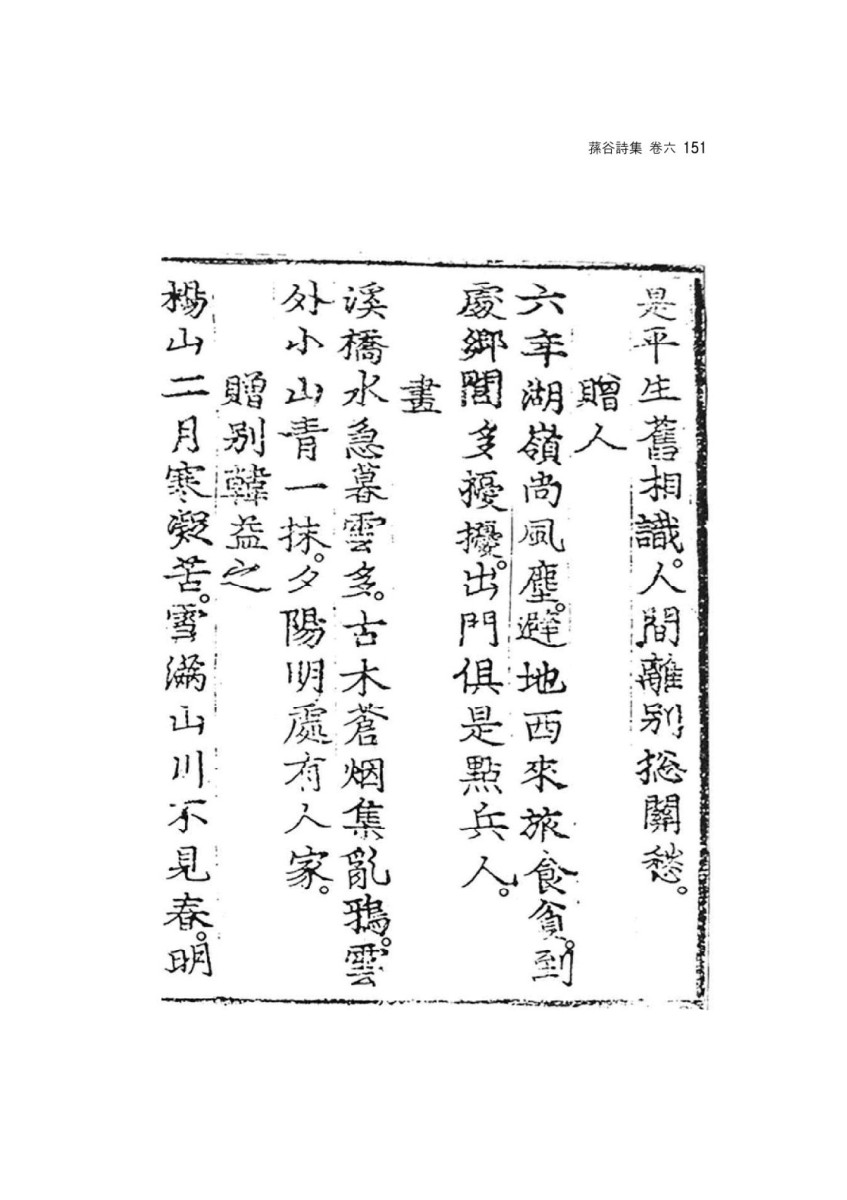 蓀谷詩集 卷六 151
是平生舊相識。人間離別揔關愁。
贈人
六年湖嶺尙風塵。避地西來旅食貧。到
處鄉閭多擾擾。出門俱是點兵人。
畫
溪橋水急暮雲多。古木蒼烟集亂鴉。雲
外小山青一抹。夕陽明處有人家。
贈別韓益之
楊山二月寒凝苦。雪滿山川不見春。明